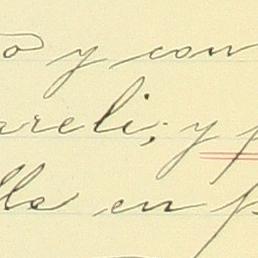 o y con
areli; y p
lla en p